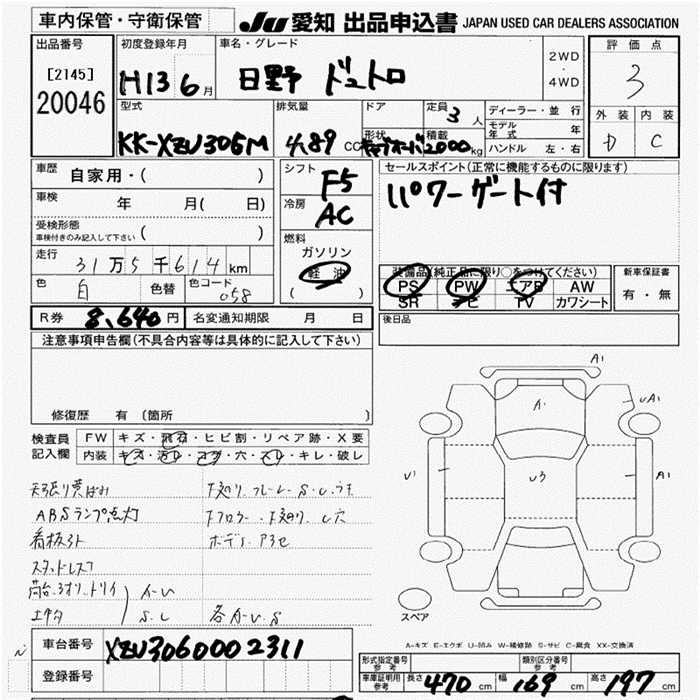 車内保管・守衛保管
JU 愛知 出品申込書 JAPAN USED CAR DEALERS ASSOCIATION
出品番号
[2145]
20046
初度登録年月
H13 6月
車名・グレード
日野 デュトロ
2WD
・
4WD
評価点
3
外装 内装
D C
型式
KK-XZU306M
排気量
4.89 CC
ドア
形状
定員 3人
積載 2000kg
ディーラー・並 行
モデル年式 年
ハンドル 左・右
車歴 自家用・( )
車検 年 月( 日)
受検形態
車検付きのみ記入して下さい ( )
走行 31万5千614km
色 白 色替 色コード 058
シフト
F5
冷房
AC
燃料
ガソリン
軽油
( )
セールスポイント(正常に機能するものに限ります)
パワーゲート付
装備品(純正品に限り○をつけてください)
PS PW エアB AW
SR ナビ TV カワシート
新車保証書
有・無
R券 8,640円 名変通知期限 月 日
後日品
注意事項申告欄(不具合内容等は具体的に記入して下さい)
修復歴 有 (箇所 )
検査員
記入欄
FW キズ・飛石・ヒビ割・リペア跡・X要
内装 キズ・汚レ・コゲ・穴・スレ・キレ・破レ
天張り黄ばみ
下廻り、フレーム S.U.
ABSランプ点灯
下フロアー、下廻り、U穴
看板跡
ボディ
スタッドレス
荷台、3オリ、トリイ A-U
S.U
各 A-U.S
A1
A1
UA1
U1
U3
A1
スペア
A-キズ E-エクボ U-凹み W-補修跡 S-サビ C-腐食 XX-交換済
車台番号 XZU3060002311
登録番号
形式指定番号 参考
類別区分番号 参考
車庫証明用 参考 長さ 470cm 幅 169cm 高さ 197cm